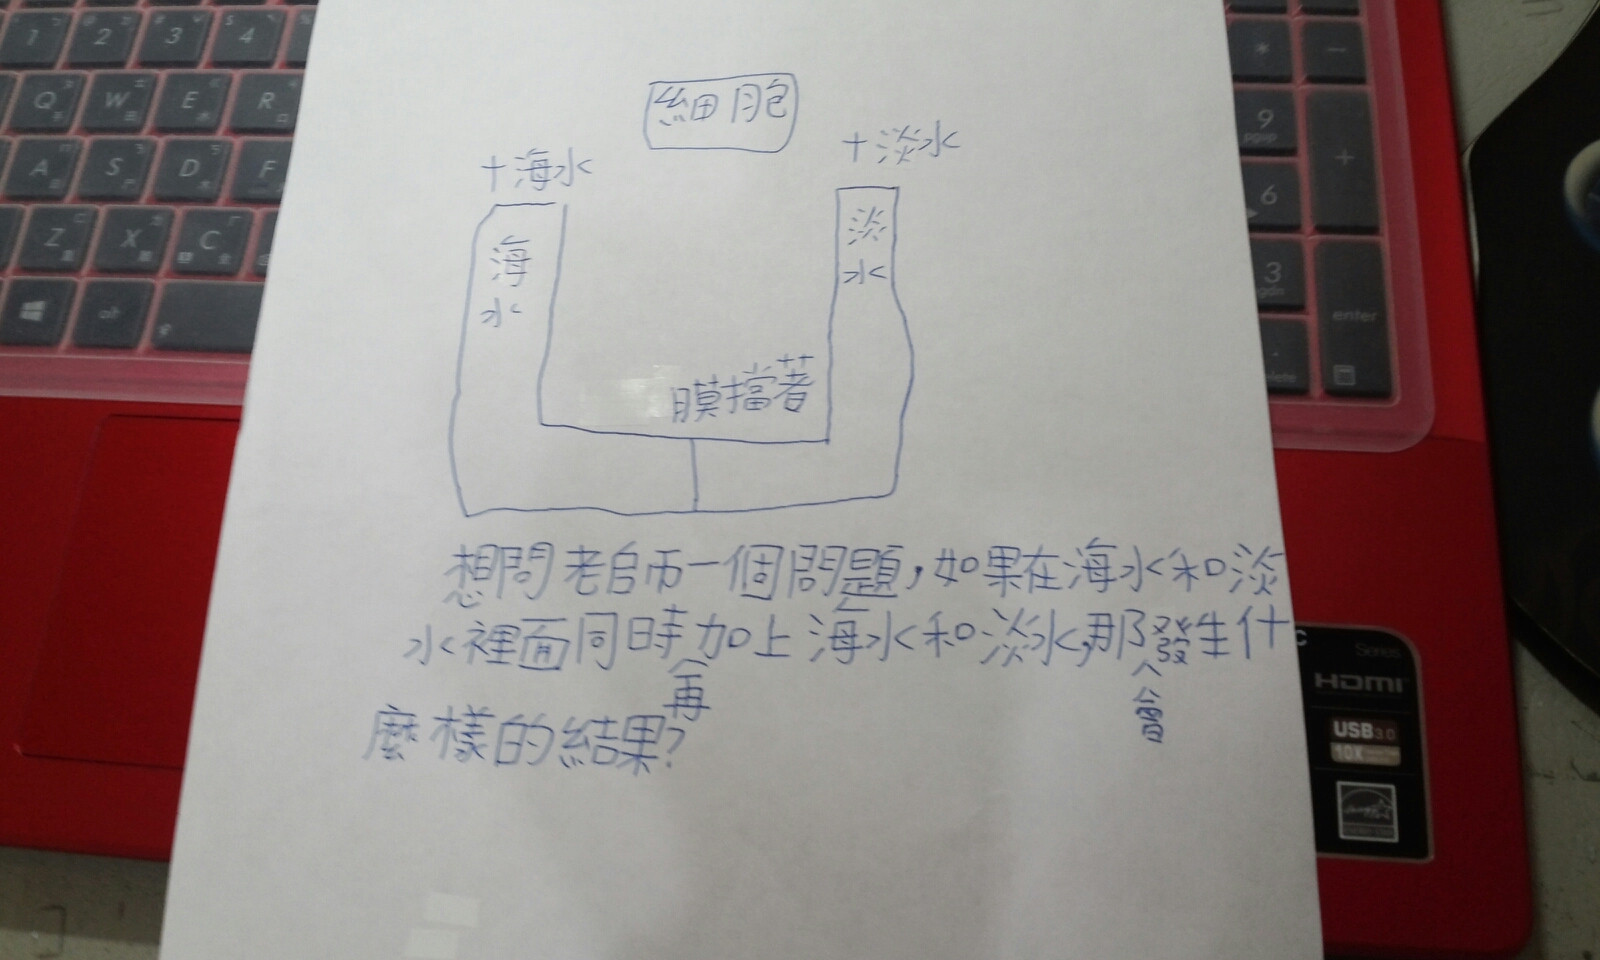 細胞
+海水
+淡水
海水
淡水
膜擋著
想問老師一個問題,如果在海水和淡
水裡面同時再加上海水和淡水,那會發生什
麼樣的結果?
1
2
3
4
Q
W
E
R
A
S
D
F
Z
X
C
alt
*
-
9
pgup
+
6
3
pgdn
enter
Series
HDMI
USB 3.0
10X